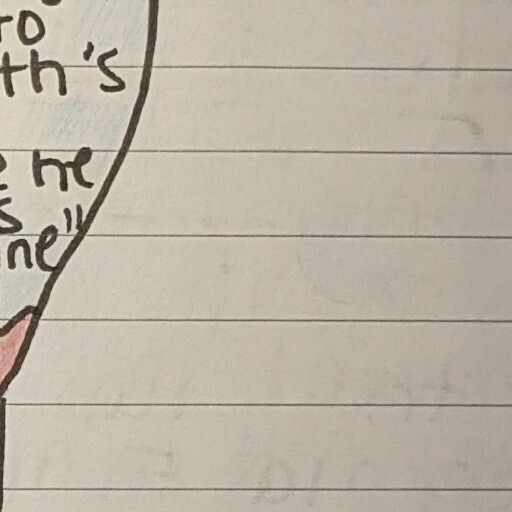 to
th's
he
s
ne"